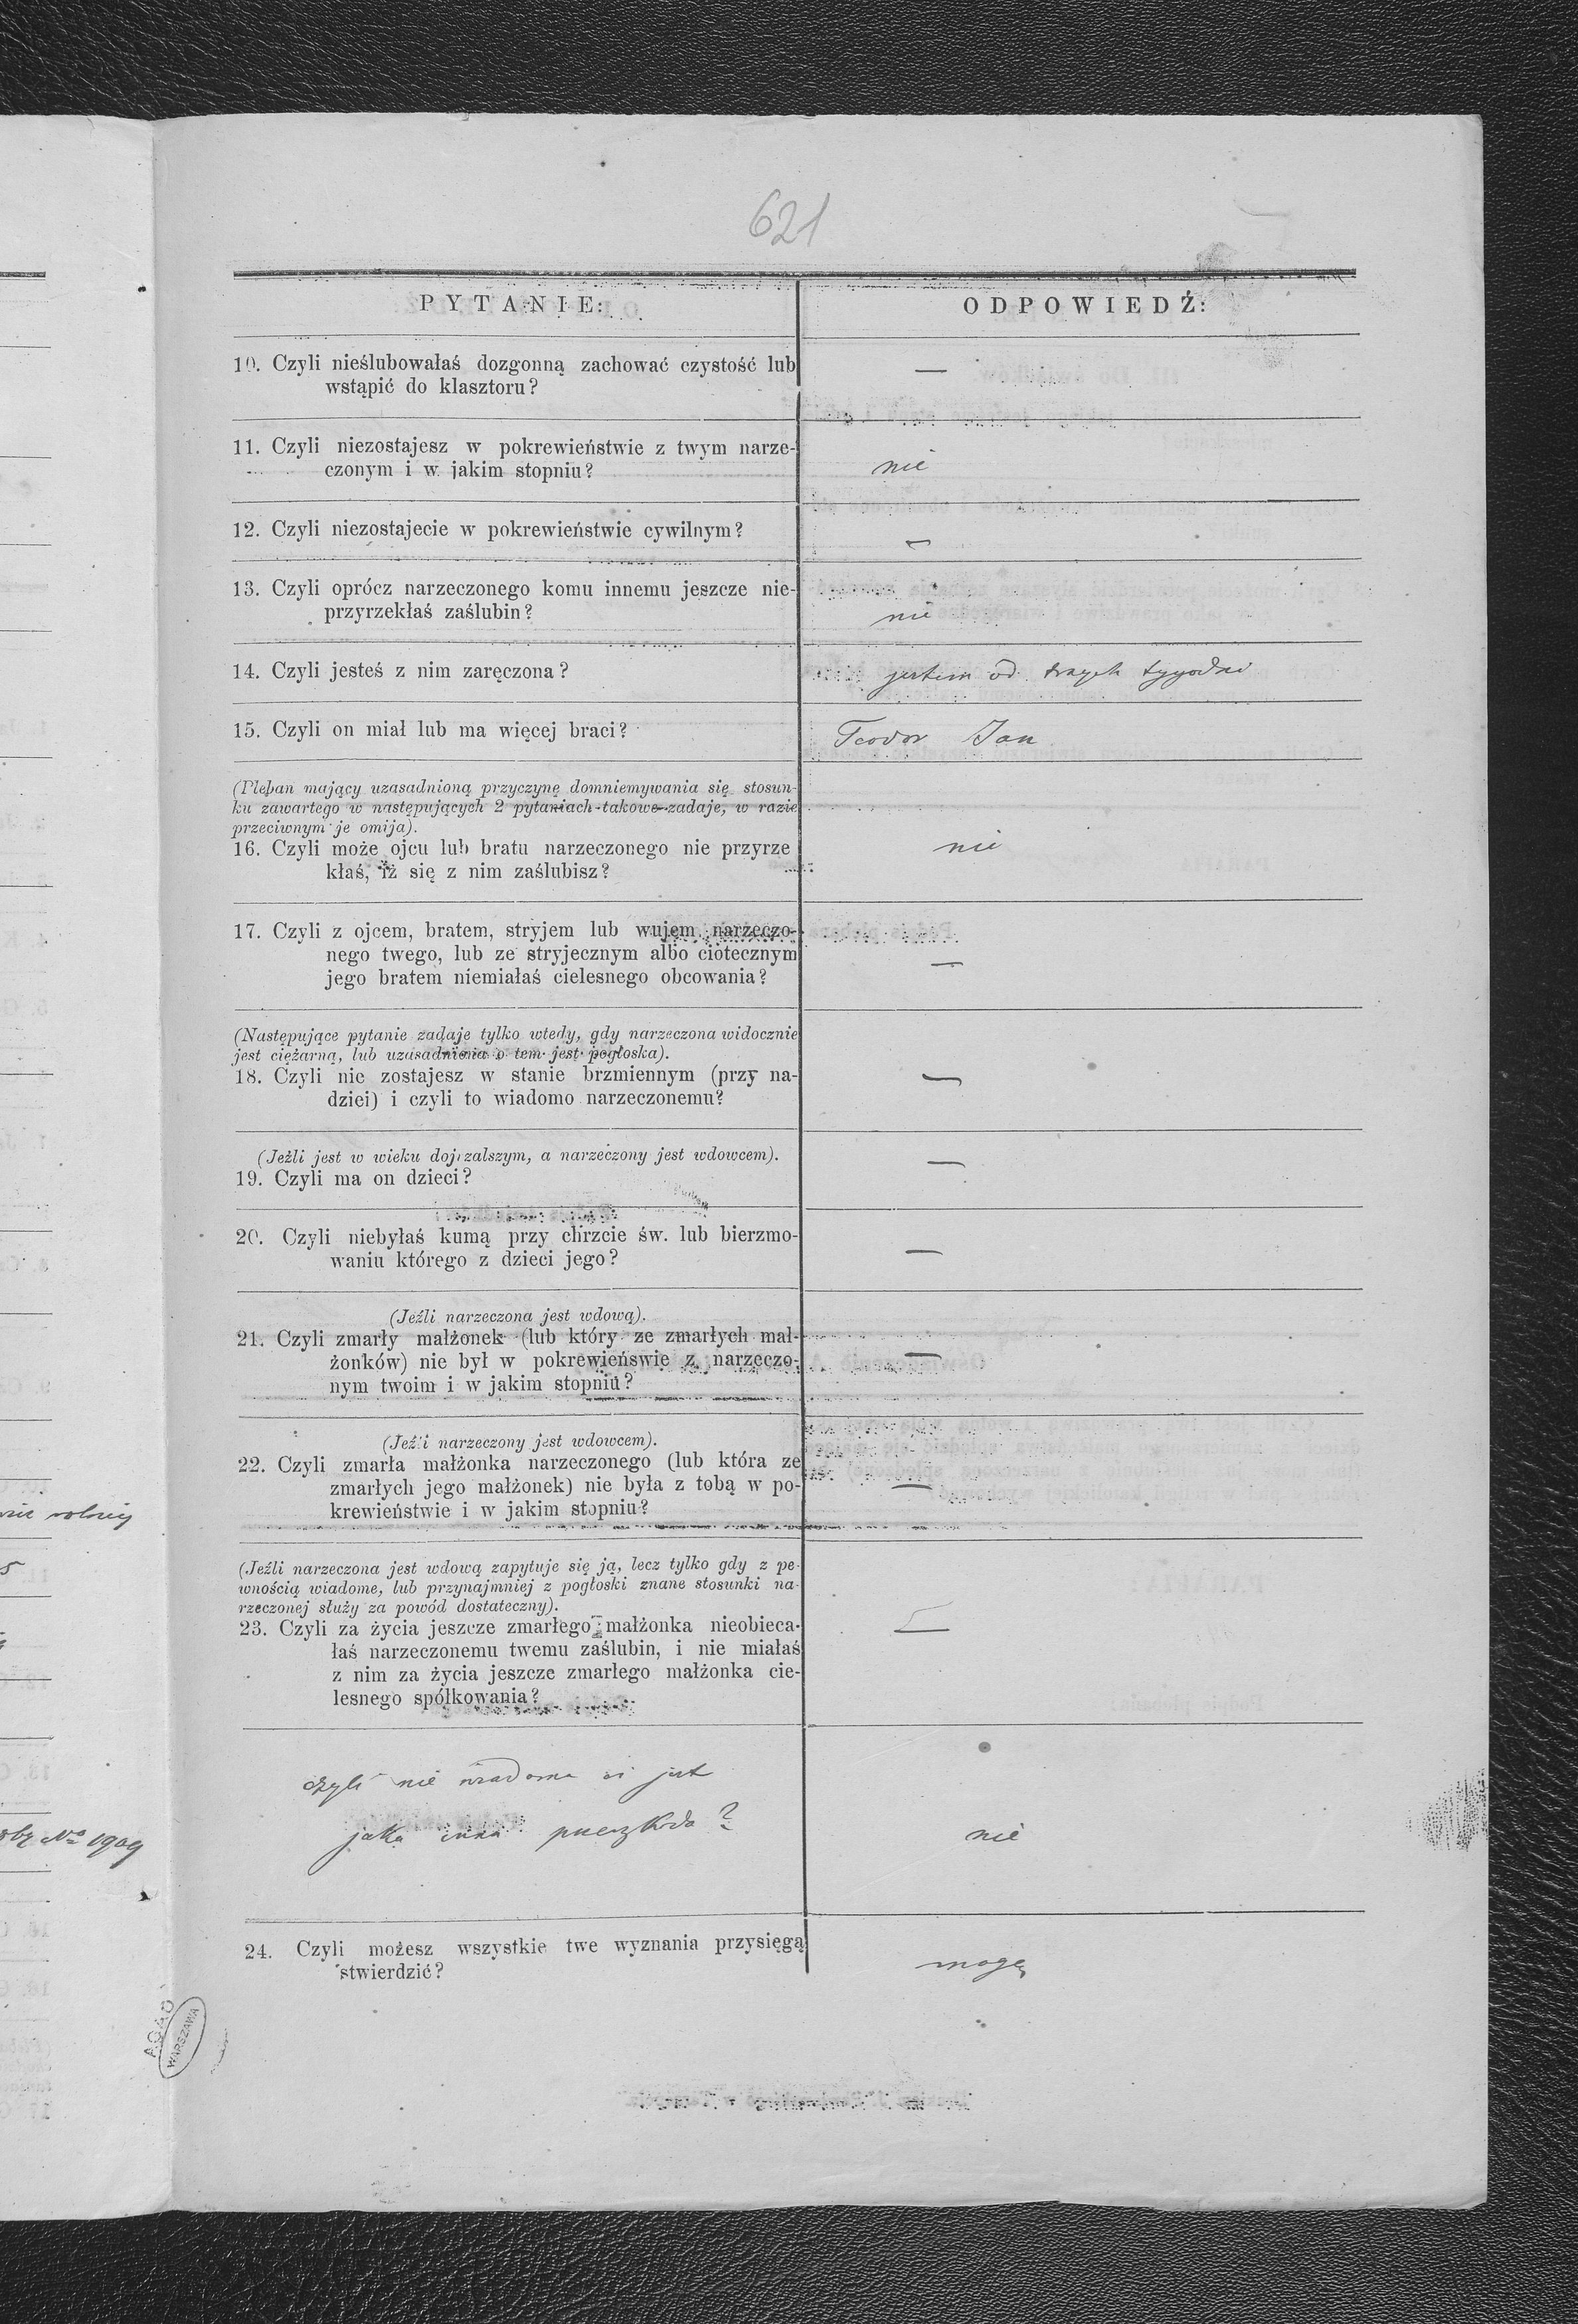 621
PYTANIE:
ODPOWIEDŹ:
10. Czyli nieślubowałaś dozgonną zachować czystość lub
wstąpić do klasztoru?
—
11. Czyli niezostajesz w pokrewieństwie z twym narze-
czonym i w jakim stopniu?
nie
12. Czyli niezostajecie w pokrewieństwie cywilnym?
—
13. Czyli oprócz narzeczonego komu innemu jeszcze nie-
przyrzekłaś zaślubin?
nie
14. Czyli jesteś z nim zaręczona?
jestem od trzech tygodni
15. Czyli on miał lub ma więcej braci?
Teodor Jan
(Pleban mający uzasadnioną przyczynę domniemywania się stosun-
ku zawartego w następujących 2 pytaniach takowe zadaje, w razie
przeciwnym je omija).
16. Czyli może ojcu lub bratu narzeczonego nie przyrze
kłaś, iż się z nim zaślubisz?
nie
17. Czyli z ojcem, bratem, stryjem lub wujem narzeczo-
nego twego, lub ze stryjecznym albo ciotecznym
jego bratem niemiałaś cielesnego obcowania?
—
(Następujące pytanie zadaje tylko wtedy, gdy narzeczona widocznie
jest ciężarną, lub uzasadniona o tem jest pogłoska).
18. Czyli nie zostajesz w stanie brzmiennym (przy na-
dziei) i czyli to wiadomo narzeczonemu?
—
(Jeżli jest w wieku dojrzalszym, a narzeczony jest wdowcem).
19. Czyli ma on dzieci?
—
20. Czyli niebyłaś kumą przy chrzcie św. lub bierzmo-
waniu którego z dzieci jego?
—
(Jeźli narzeczona jest wdową).
21. Czyli zmarły małżonek (lub który ze zmarłych mał-
żonków) nie był w pokrewieńswie z narzeczo-
nym twoim i w jakim stopniu?
—
(Jeźli narzeczony jest wdowcem).
22. Czyli zmarła małżonka narzeczonego (lub która ze
zmarłych jego małżonek) nie była z tobą w po-
krewieństwie i w jakim stopniu?
—
(Jeźli narzeczona jest wdową zapytuje się ją, lecz tylko gdy z pe-
wnością wiadome, lub przynajmniej z pogłoski znane stosunki na-
rzeczonej służy za powód dostateczny).
23. Czyli za życia jeszcze zmarłego małżonka nieobieca-
łaś narzeczonemu twemu zaślubin, i nie miałaś
z nim za życia jeszcze zmarłego małżonka cie-
lesnego spółkowania?
—
czyli nie wiadoma ci jest
jaka inna przeszkoda?
nie
24. Czyli możesz wszystkie twe wyznania przysięgą
stwierdzić?
mogę
AGAD
WARSZAWA
№ 1909